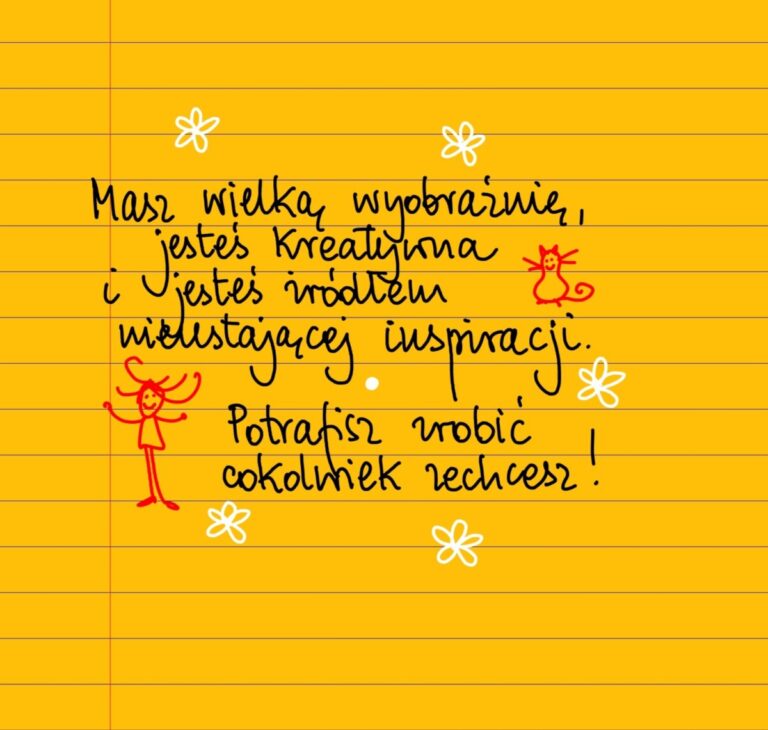 Masz wielką wyobraźnię,
jesteś kreatywna
i jesteś źródłem
nieustającej inspiracji.
Potrafisz zrobić
cokolwiek zechcesz!